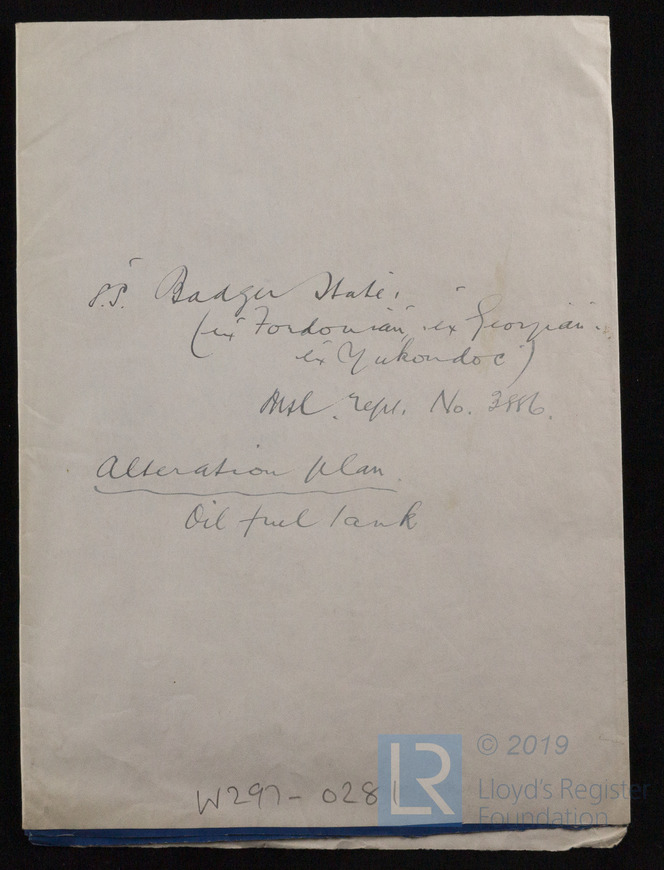 S.S. "Badger State"
(ex "Fordonian", ex "Georgian"
ex "Yukondoc")
Mtl. rept. No. 3886.
Alteration plan.
Oil fuel tank
W297-0281
LR
© 2019
Lloyd's Register
Foundation